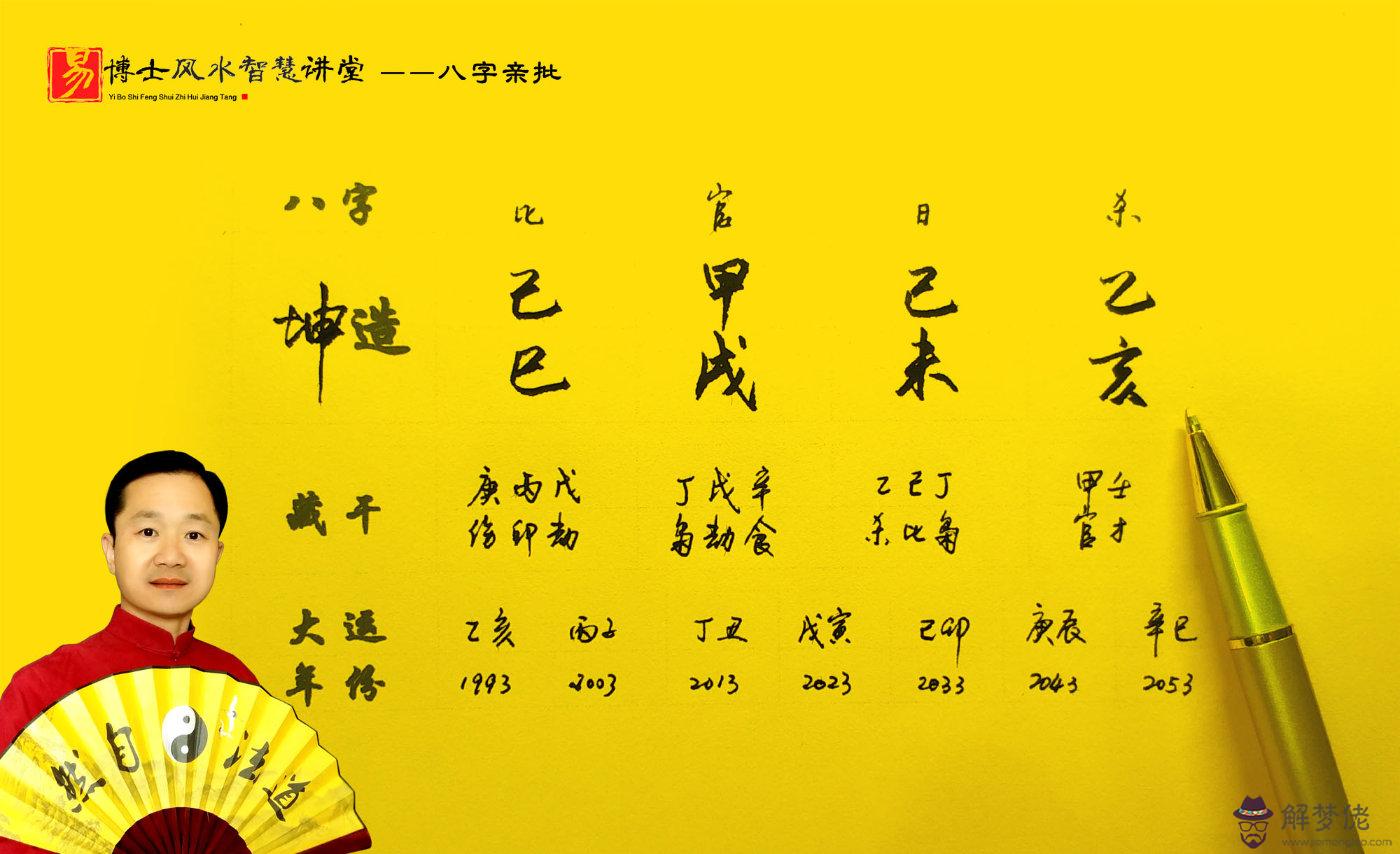 易 博士风水智慧讲堂 ——八字亲批
Yi Bo Shi Feng Shui Zhi Hui Jiang Tang
八字 比 官 日 杀
坤造 己 甲 己 乙
巳 戌 未 亥
藏干 庚丙戊 丁戊辛 乙己丁 甲壬
伤印劫 枭劫食 杀比枭 官才
大运 乙亥 丙子 丁丑 戊寅 己卯 庚辰 辛巳
年份 1993 2003 2013 2023 2033 2043 2053
然自法道
解梦佬
www.jiemenglao.com